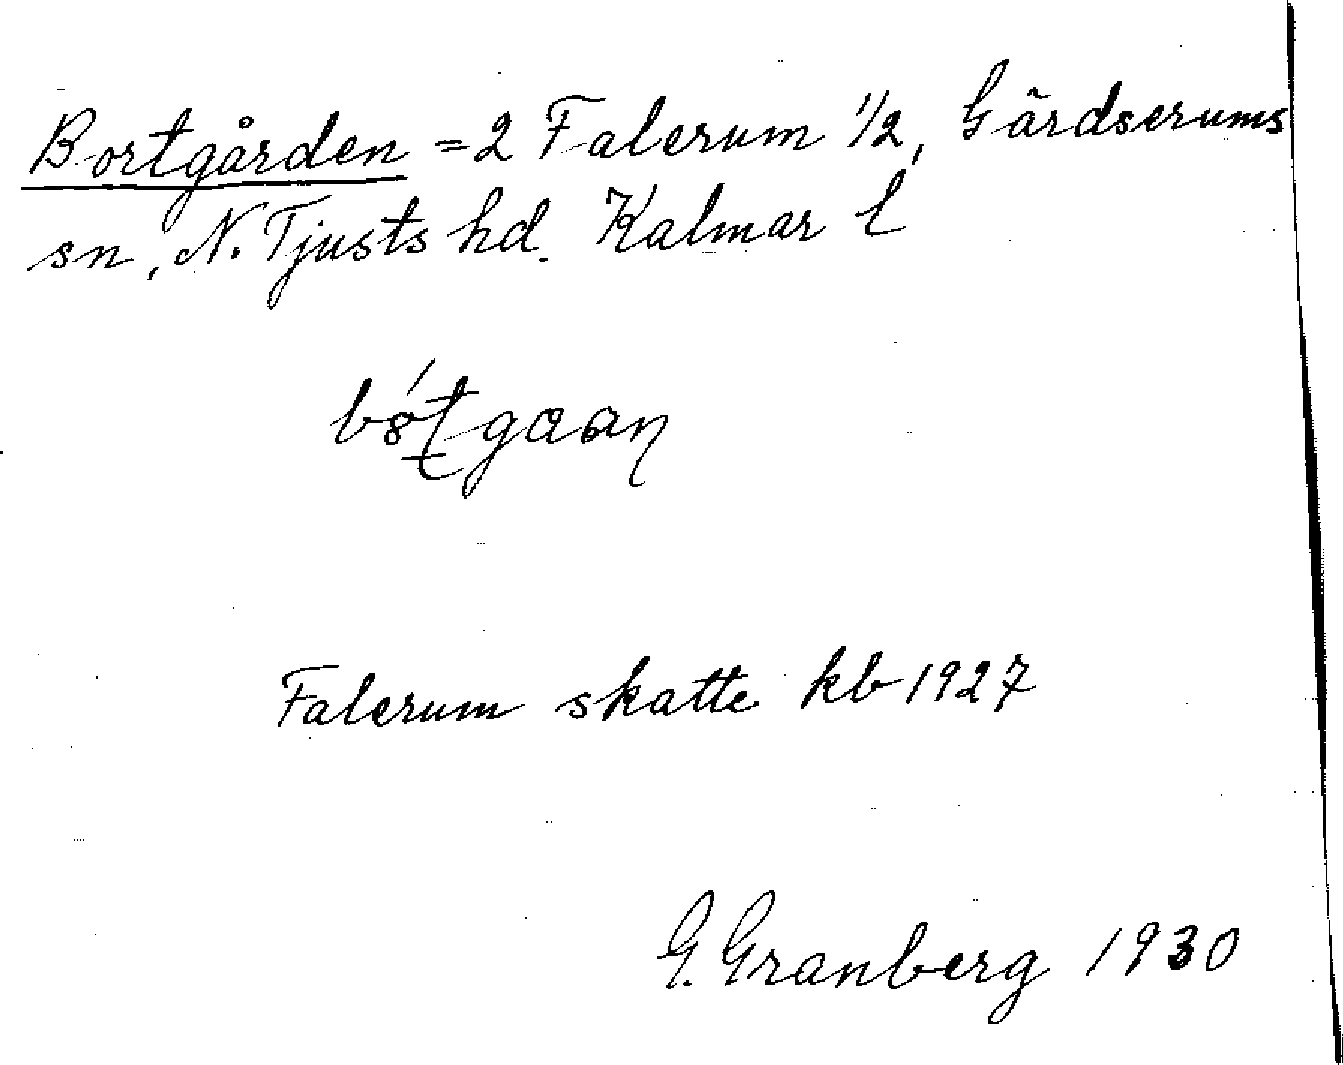 Bortgården = 2 Falerum 1/2, Gärdserums
sn, N. Tjusts hd. Kalmar l
Falerum skatte kb 1927
G. Granberg 1930